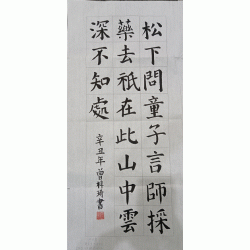 松下問童子言師採
藥去祇在此山中雲
深不知處
辛丑年曾科瑜書